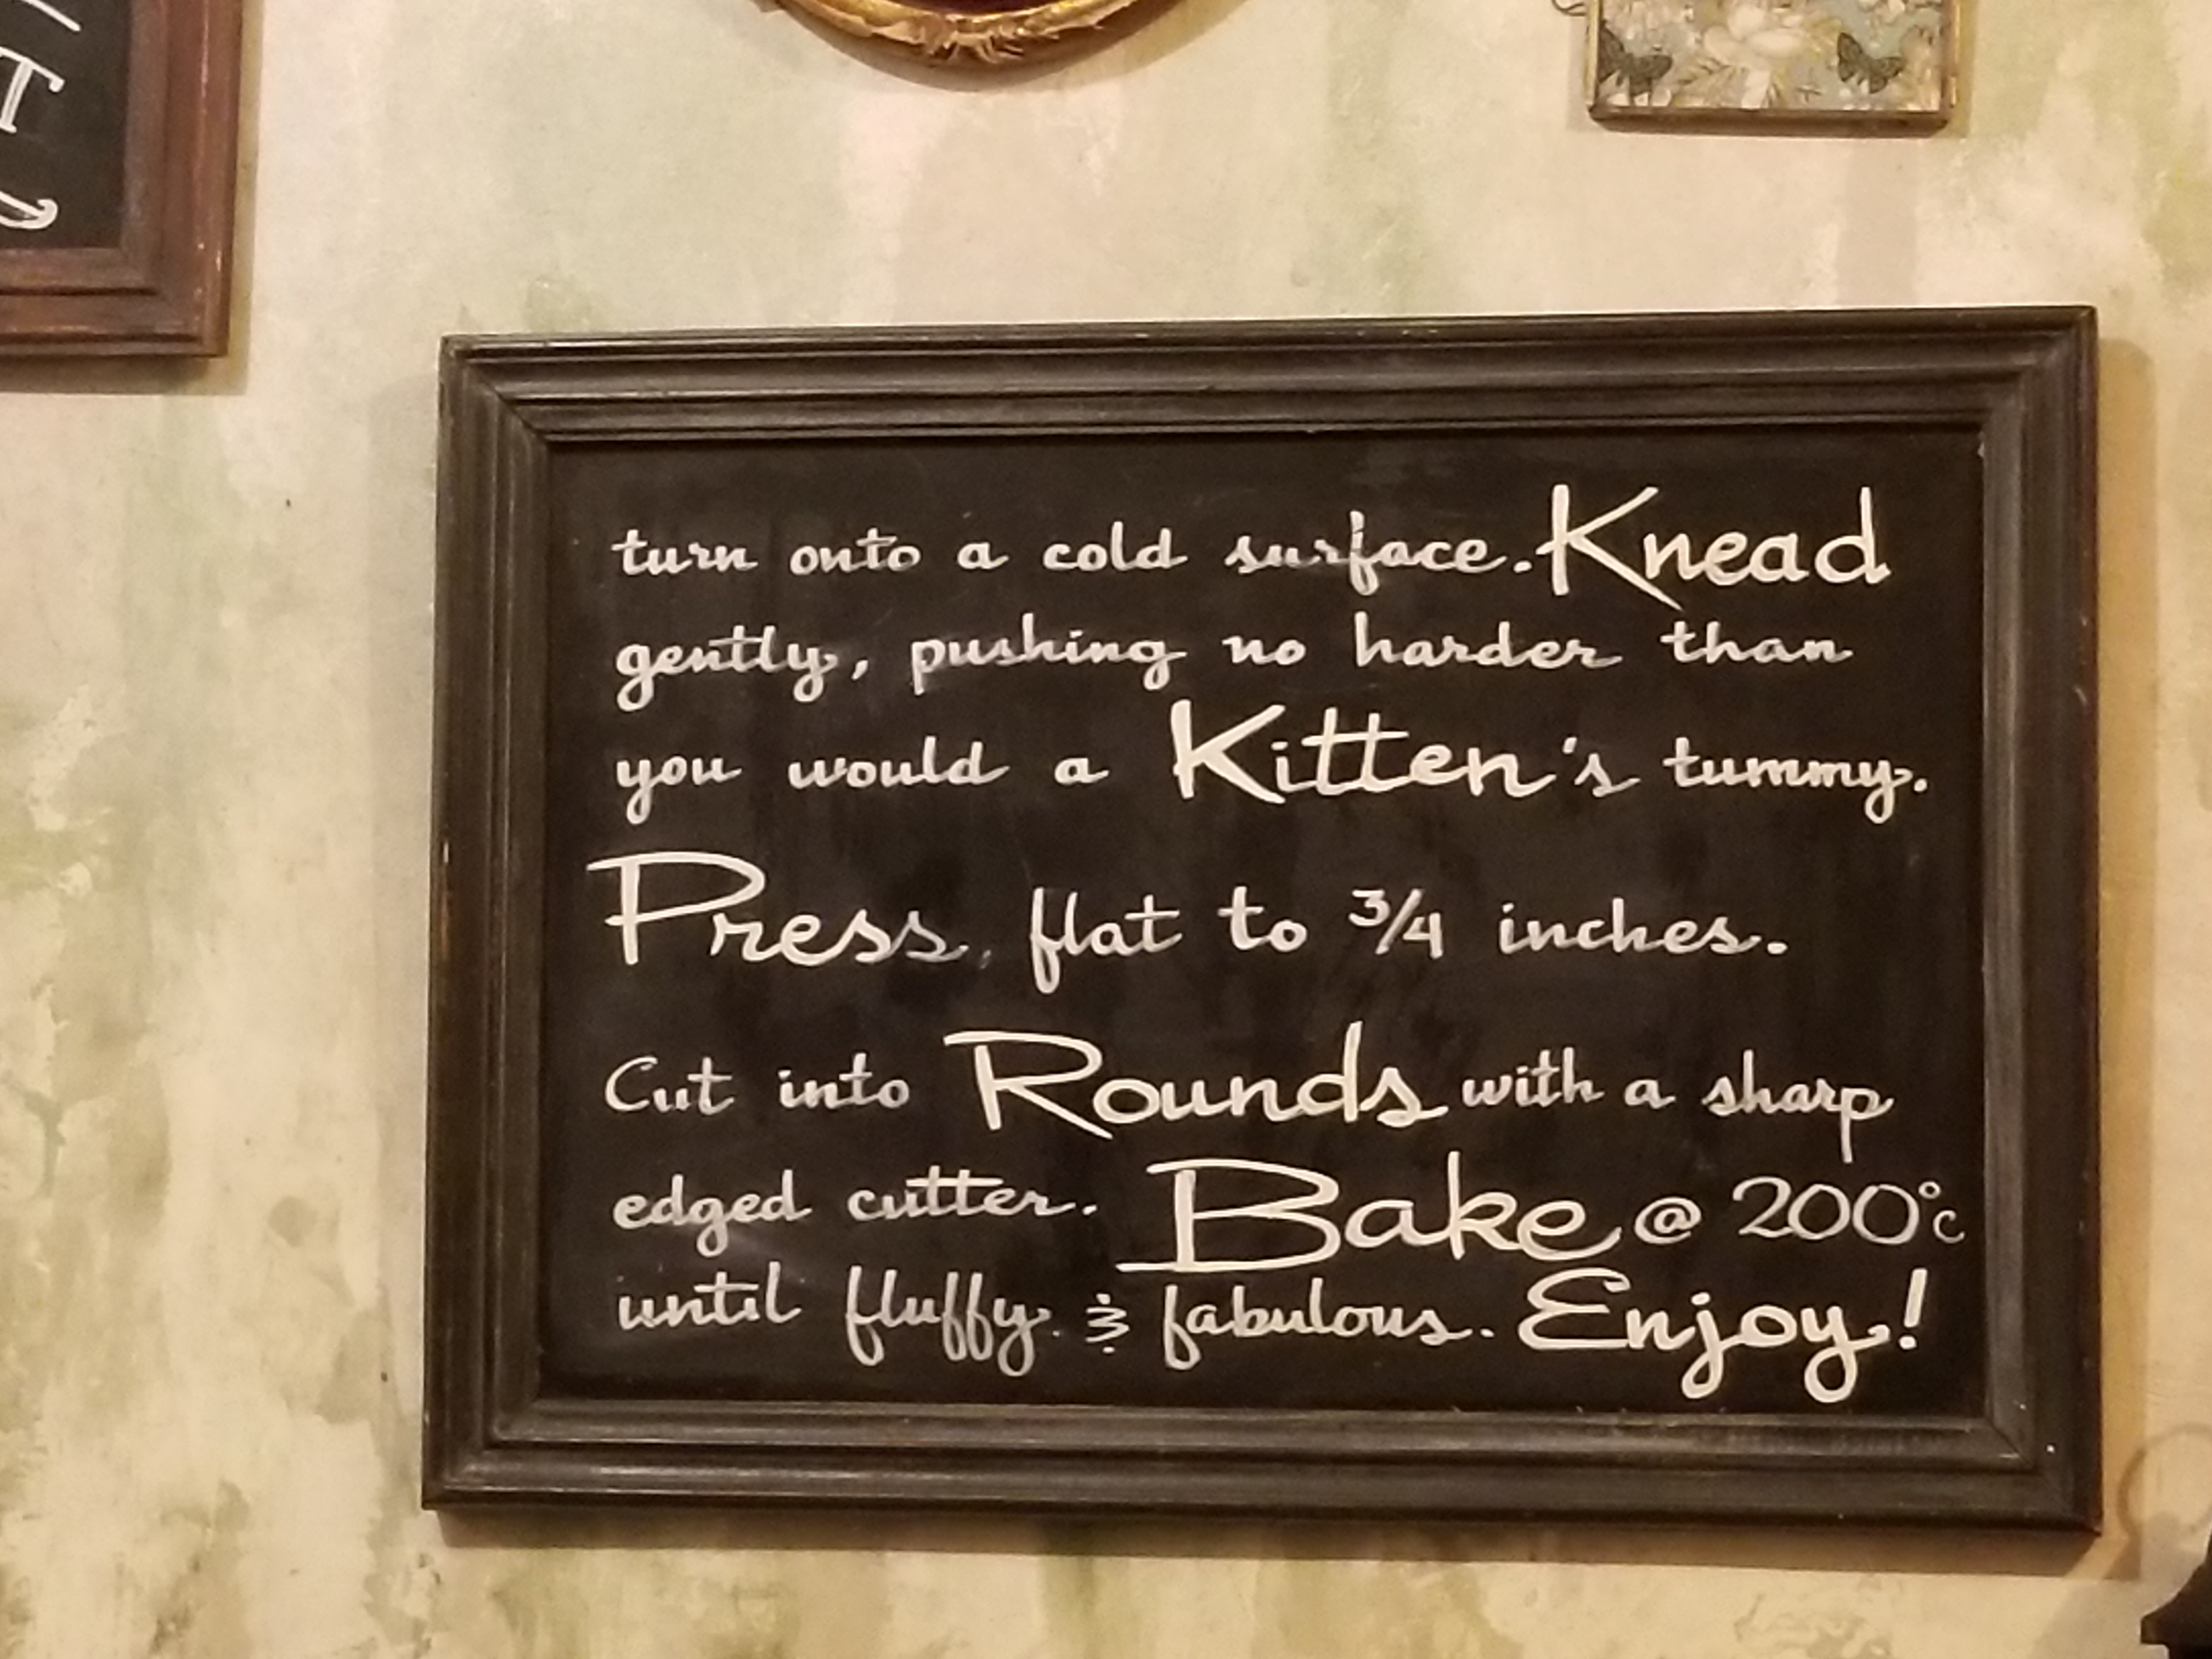 turn onto a cold surface. Knead
gently, pushing no harder than
you would a Kitten's tummy.
Press, flat to 3/4 inches.
Cut into Rounds with a sharp
edged cutter. Bake @ 200°c
until fluffy & fabulous. Enjoy!